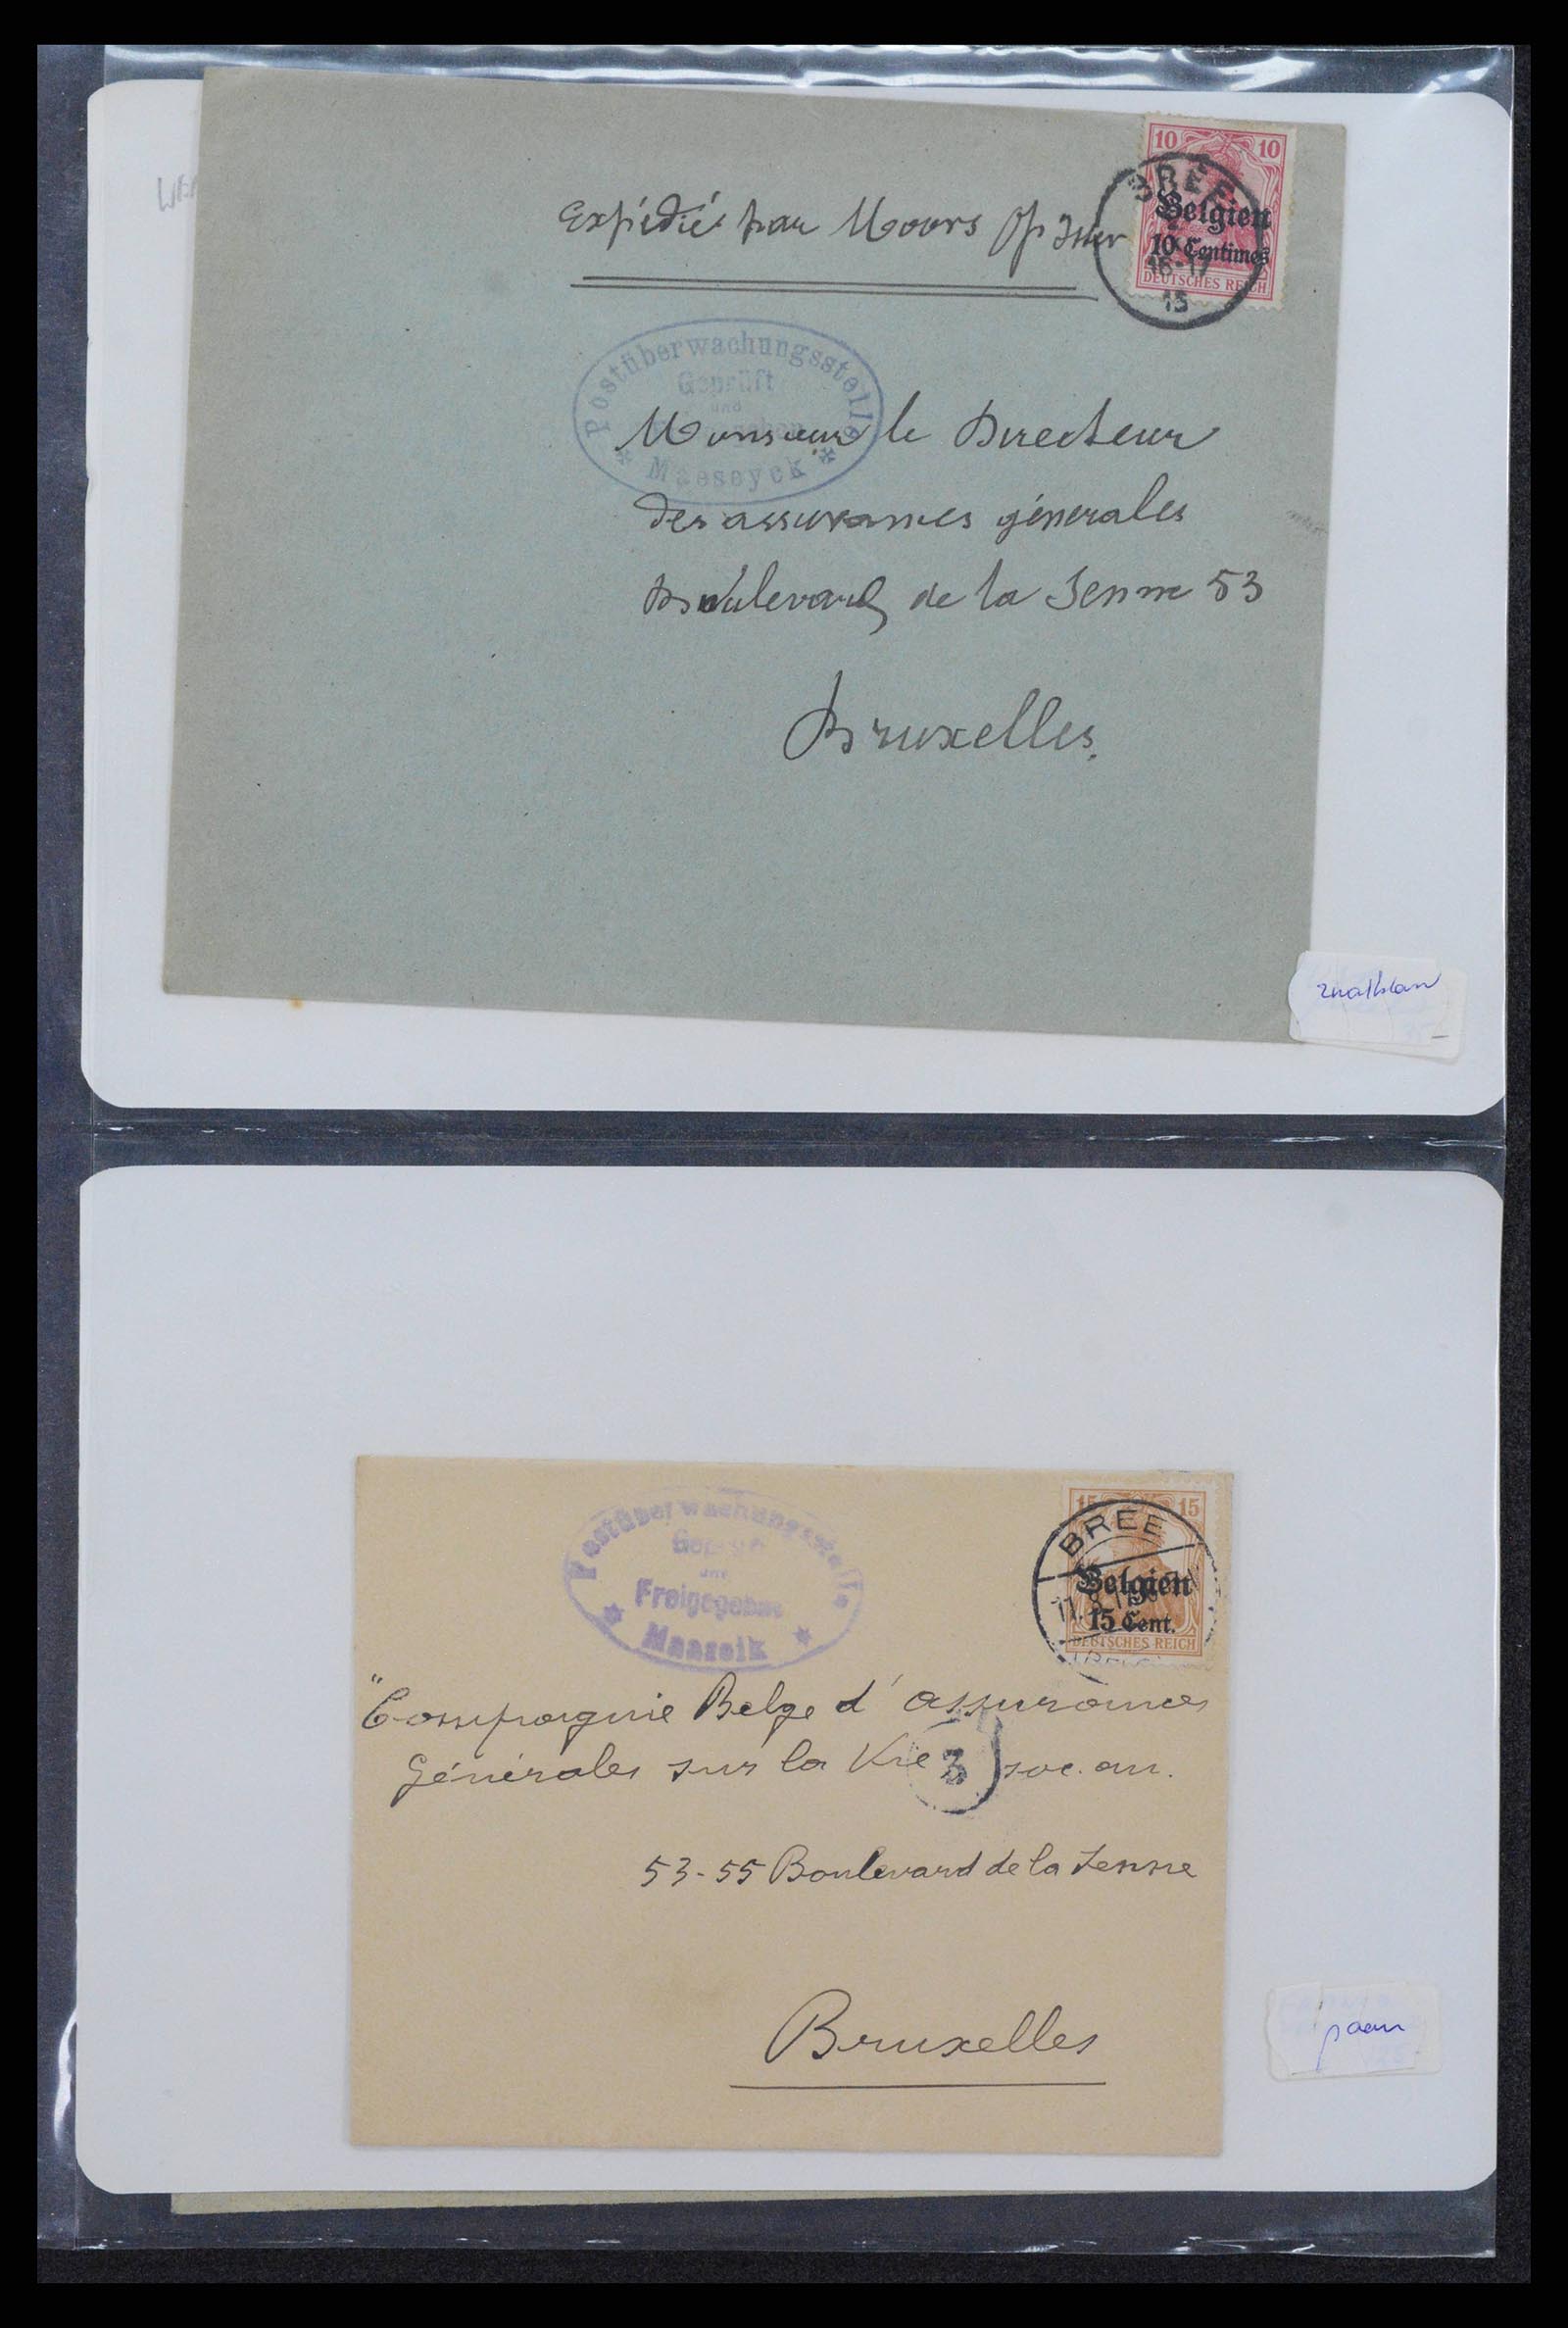 10 10
BREE
Belgien
10 Centimes
16-17
DEUTSCHES REICH
15
Expédié par Moors Opitter
Postüberwachungsstelle
Geprüft
und
Maeseyck
Monsieur le Directeur
des assurances générales
Boulevard de la Senne 53
Bruxelles.
15 15
BREE
Belgien
15 Cent.
DEUTSCHES REICH
Postüberwachungsstelle
und
Freigegeben
Maaseik
"Compagnie Belge d'assurances
Générales sur la Vie soc. an.
3
53-55 Boulevard de la Senne
Bruxelles
paars